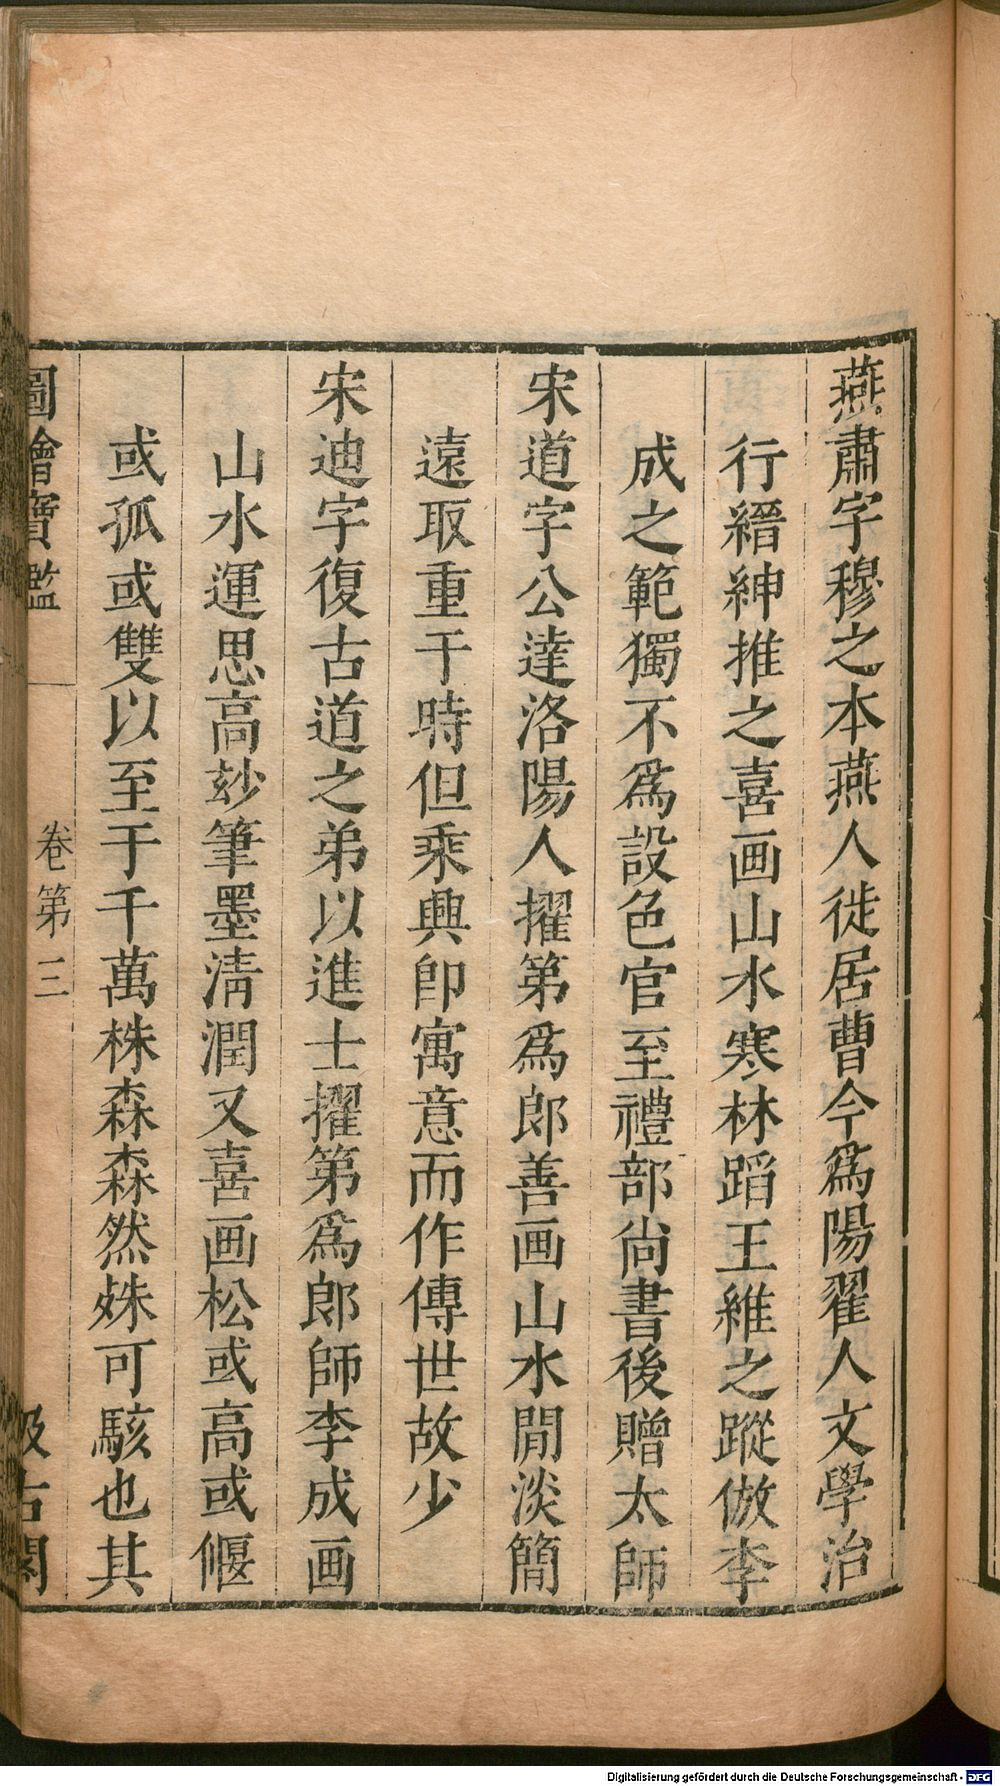 燕肅字穆之本燕人徙居曹今爲陽翟人文學治
行縉紳推之喜画山水寒林蹈王維之蹤倣李
成之範獨不爲設色官至禮部尙書後贈太師
宋道字公達洛陽人擢第爲郎善画山水閒淡簡
遠取重于時但乘興卽寓意而作傳世故少
宋迪字復古道之弟以進士擢第爲郎師李成画
山水運思高玅筆墨淸潤又喜画松或高或偃
或孤或雙以至于千萬株森森然殊可駭也其
圖繪寶鑑 卷第三 汲古閣
Digitalisierung gefördert durch die Deutsche Forschungsgemeinschaft - DFG